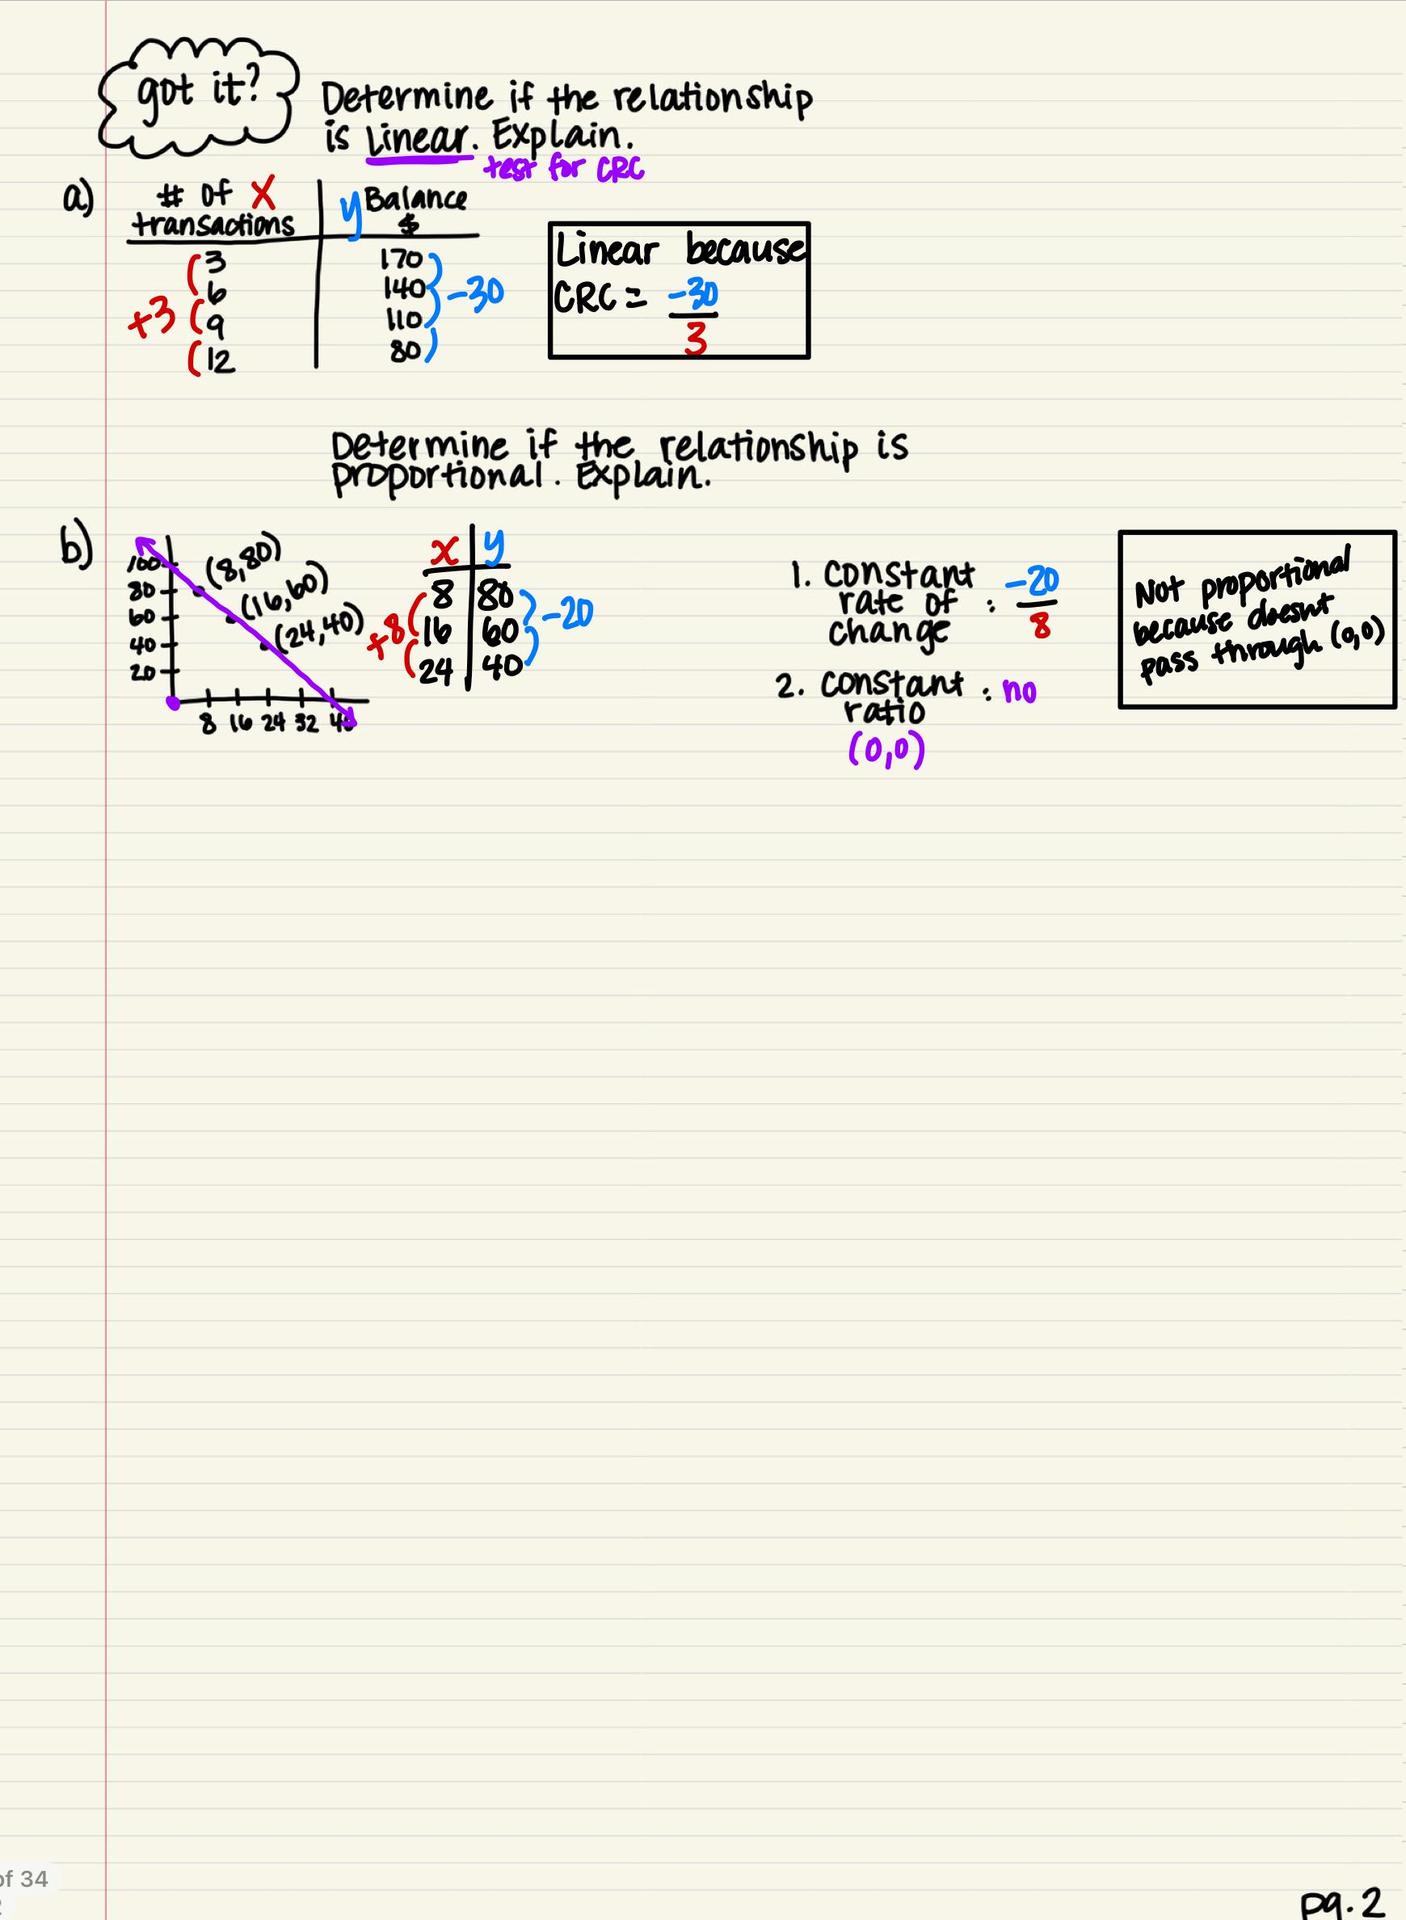 got it?
Determine if the relationship
is linear. Explain.
test for CRC
a)
# of X
transactions
y Balance
$
3 170
6 140
9 110
12 80
+3
-30
Linear because
CRC = -30
3
Determine if the relationship is
proportional. Explain.
b)
100
80
60
40
20
8 16 24 32 40
(8,80)
(16,60)
(24,40)
x y
8 80
16 60
24 40
+8
-20
1. constant
rate of : -20
change 8
2. constant : no
ratio
(0,0)
Not proportional
because doesnt
pass through (0,0)
of 34
pg. 2